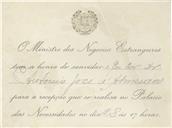 O Ministro dos Negocios Estrangeiros
tem a honra de convidar o Ex.mo Snr. Dr.
Antonio José d'Almeida
para a recepção que se realisa no Palacio
das Necessidades no dia 13 ás 17 horas.